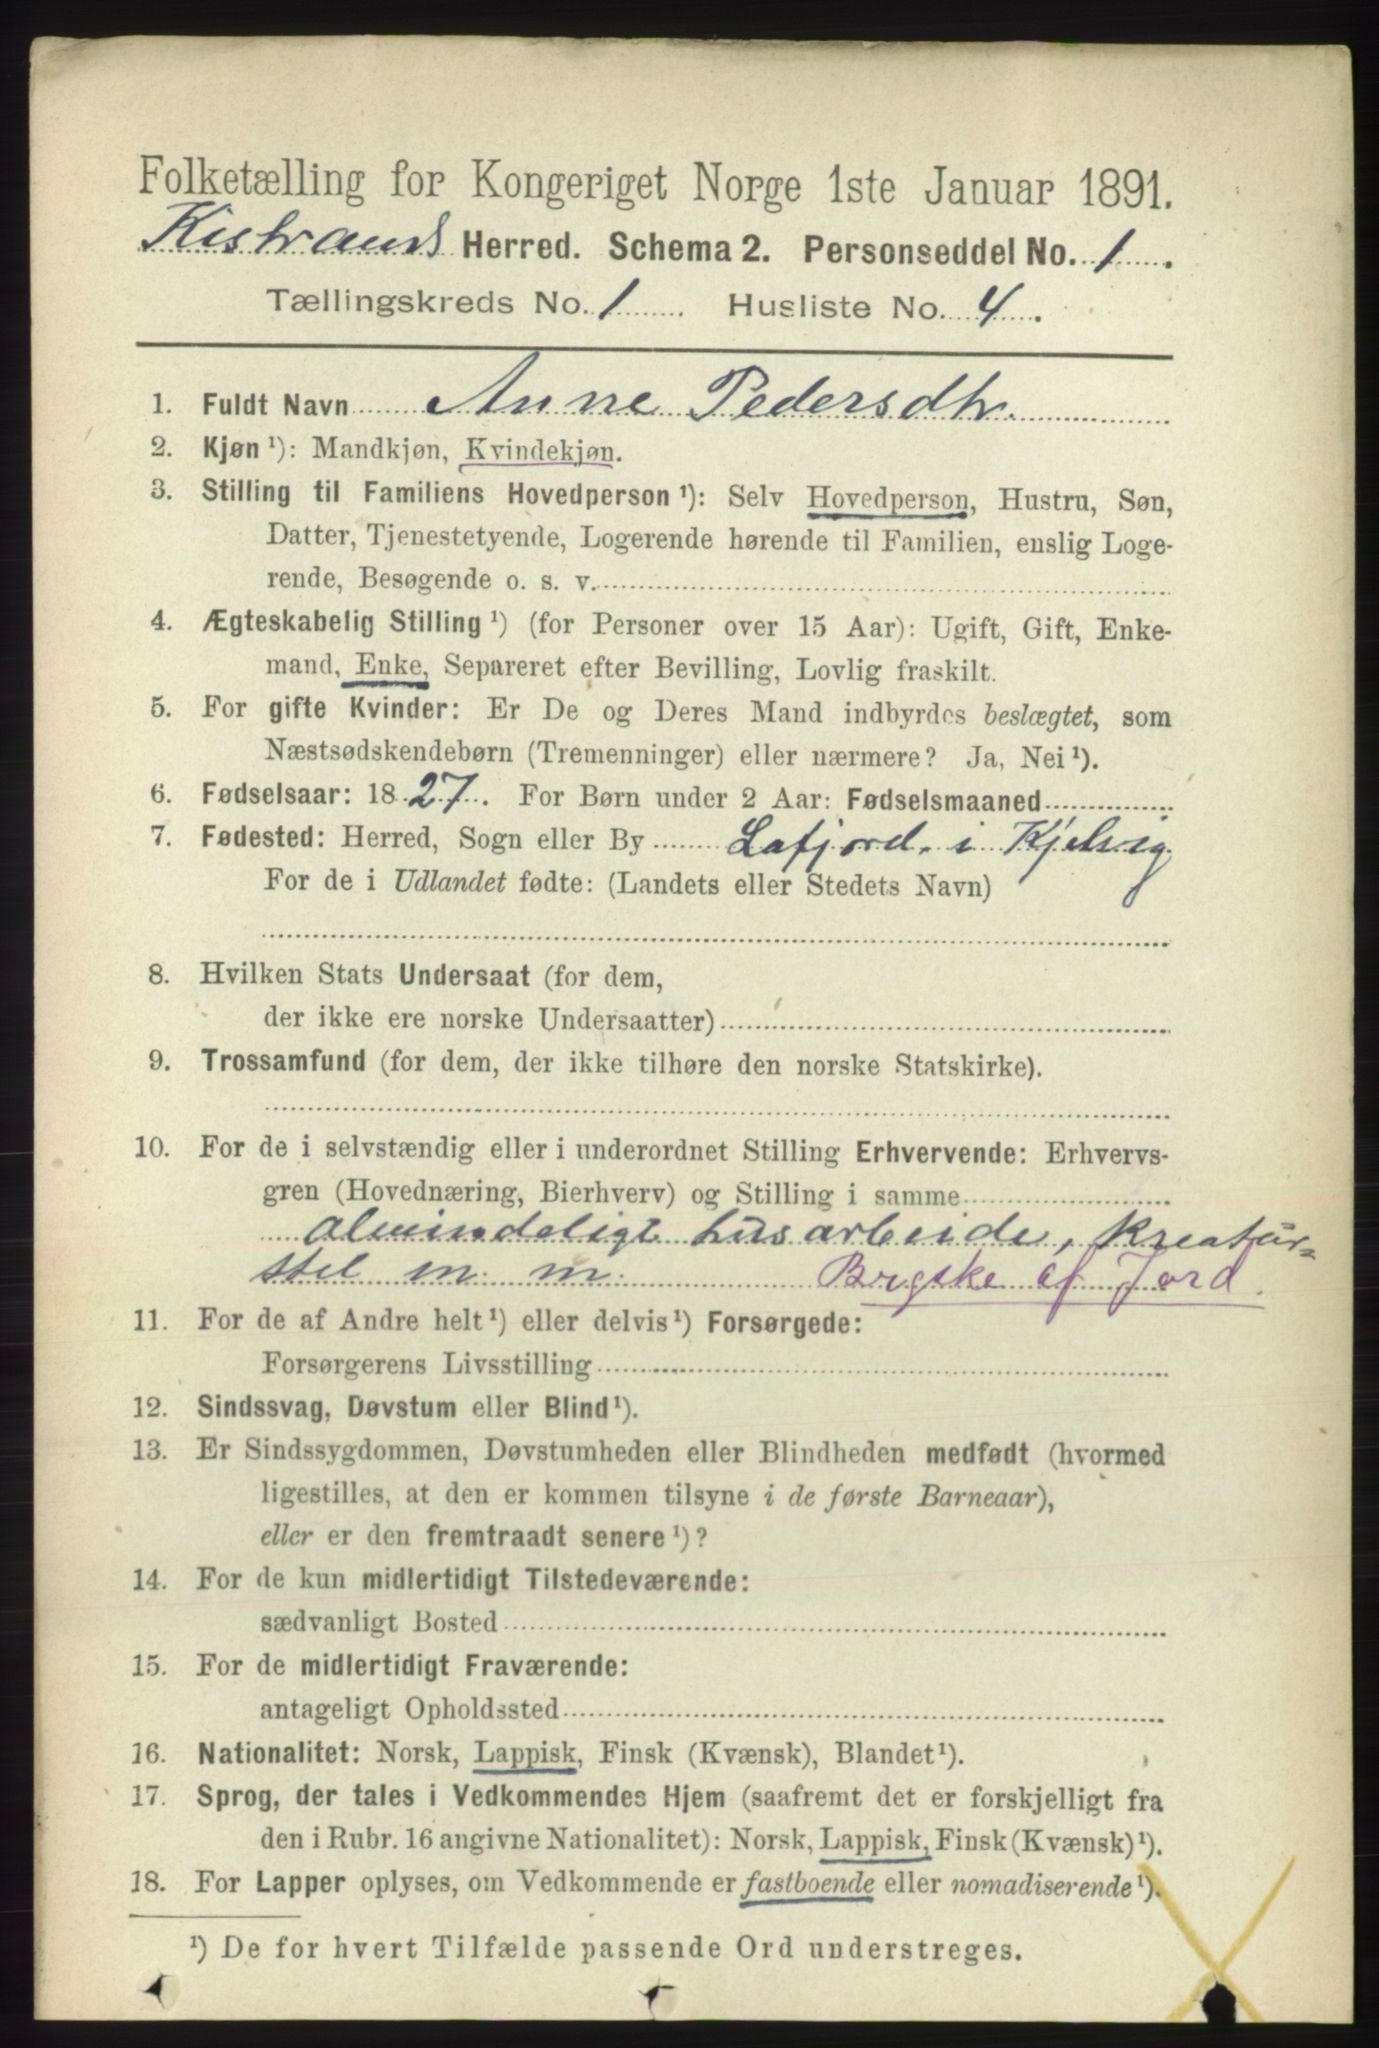 Folketælling for Kongeriget Norge 1ste Januar 1891.
Kistrand Herred. Schema 2. Personseddel No. 1.
Tællingskreds No. 1. Husliste No. 4.
1. Fuldt Navn Anne Pedersdtr.
2. Kjøn ¹): Mandkjøn, Kvindekjøn.
3. Stilling til Familiens Hovedperson ¹): Selv Hovedperson, Hustru, Søn,
Datter, Tjenestetyende, Logerende hørende til Familien, enslig Loge-
rende, Besøgende o. s. v.
4. Ægteskabelig Stilling ¹) (for Personer over 15 Aar): Ugift, Gift, Enke-
mand, Enke, Separeret efter Bevilling, Lovlig fraskilt.
5. For gifte Kvinder: Er De og Deres Mand indbyrdes beslægtet, som
Næstsødskendebørn (Tremenninger) eller nærmere? Ja, Nei ¹).
6. Fødselsaar: 1827. For Børn under 2 Aar: Fødselsmaaned
7. Fødested: Herred, Sogn eller By Lafjord. i Kjelvig
For de i Udlandet fødte: (Landets eller Stedets Navn)
8. Hvilken Stats Undersaat (for dem,
der ikke ere norske Undersaatter)
9. Trossamfund (for dem, der ikke tilhøre den norske Statskirke).
10. For de i selvstændig eller i underordnet Stilling Erhvervende: Erhvervs-
gren (Hovednæring, Bierhverv) og Stilling i samme
almindeligt husarbeide, kreatur=
stel m. m. Brgske af Jord.
11. For de af Andre helt ¹) eller delvis ¹) Forsørgede:
Forsørgerens Livsstilling
12. Sindssvag, Døvstum eller Blind ¹).
13. Er Sindssygdommen, Døvstumheden eller Blindheden medfødt (hvormed
ligestilles, at den er kommen tilsyne i de første Barneaar),
eller er den fremtraadt senere ¹)?
14. For de kun midlertidigt Tilstedeværende:
sædvanligt Bosted
15. For de midlertidigt Fraværende:
antageligt Opholdssted
16. Nationalitet: Norsk, Lappisk, Finsk (Kvænsk), Blandet ¹).
17. Sprog, der tales i Vedkommendes Hjem (saafremt det er forskjelligt fra
den i Rubr. 16 angivne Nationalitet): Norsk, Lappisk, Finsk (Kvænsk) ¹).
18. For Lapper oplyses, om Vedkommende er fastboende eller nomadiserende ¹).
¹) De for hvert Tilfælde passende Ord understreges.